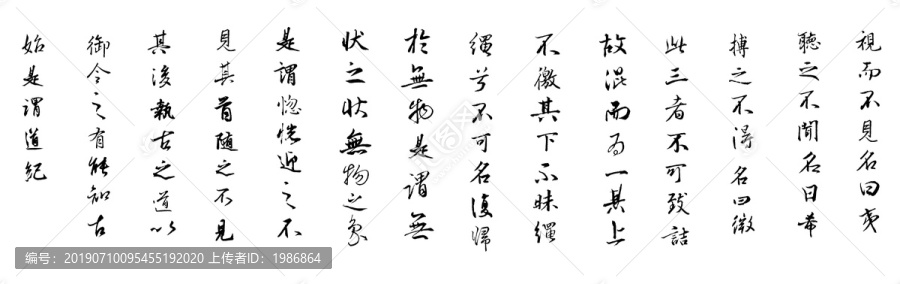 視而不見名曰夷
聽之不聞名曰希
搏之不得名曰微
此三者不可致詰
故混而為一其上
不徼其下不昧繩
繩兮不可名復歸
於無物是謂無
狀之狀無物之象
是謂惚恍迎之不
見其首隨之不見
其後執古之道以
御今之有能知古
始是謂道紀
编号：20190710095455192020 上传者ID：1986864